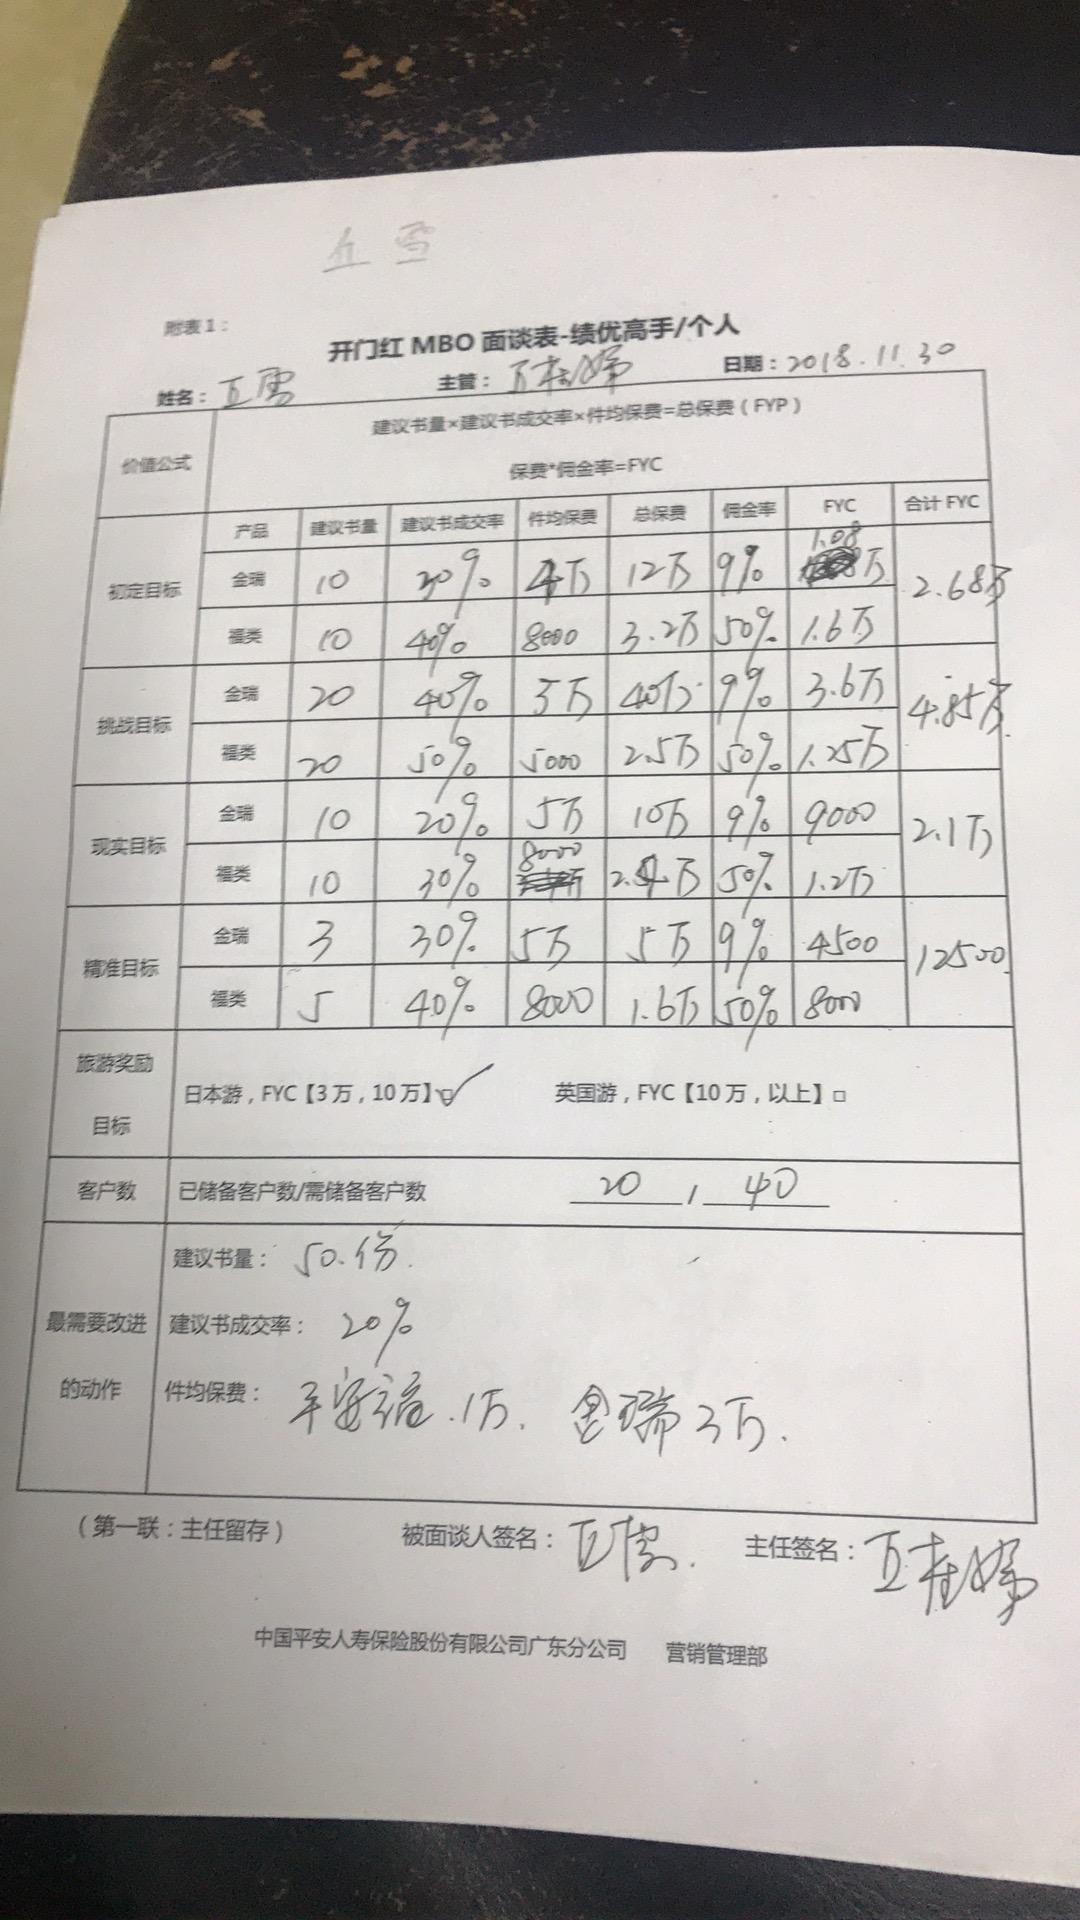 丘雪
附表1：
开门红 MBO 面谈表-绩优高手/个人
姓名：丘雪 主管：丘桂娣 日期：2018.11.30
价值公式
建议书量×建议书成交率×件均保费=总保费（FYP）
保费*佣金率=FYC
产品 建议书量 建议书成交率 件均保费 总保费 佣金率 FYC 合计 FYC
初定目标 金瑞 10 30% 4万 12万 9% 1.08万 2.68万
福类 10 40% 8000 3.2万 50% 1.6万
挑战目标 金瑞 20 40% 5万 40万 9% 3.6万 4.85万
福类 20 50% 5000 2.5万 50% 1.25万
现实目标 金瑞 10 20% 5万 10万 9% 9000 2.1万
福类 10 30% 8000 2.4万 50% 1.2万
精准目标 金瑞 3 30% 5万 5万 9% 4500 12500
福类 5 40% 8000 1.6万 50% 8000
旅游奖励目标 日本游，FYC【3万，10万】☑ 英国游，FYC【10万，以上】□
客户数 已储备客户数/需储备客户数 20 / 40
最需要改进的动作
建议书量：50.份.
建议书成交率：20%
件均保费：平安福.1万. 金瑞3万.
（第一联：主任留存） 被面谈人签名：丘雪. 主任签名：丘桂娣
中国平安人寿保险股份有限公司广东分公司 营销管理部